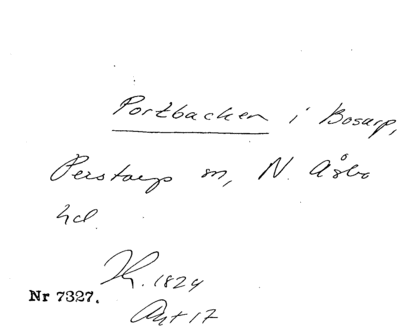 Portbacken i Bosarp,
Perstorps sn, N. Åsbo
hd.
1824
Nr 7327.
Akt 17